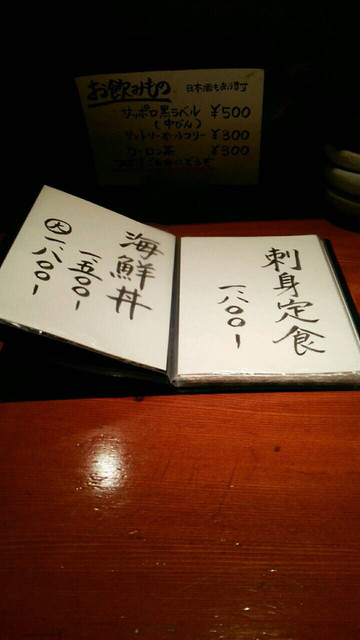 お飲みもの
日本酒もあります
サッポロ黒ラベル ¥500
(中びん)
サントリーオールフリー ¥300
ウーロン茶 ¥300
刺身定食
一、八〇〇ー
海鮮丼
一五〇〇ー
大 一、八〇〇ー